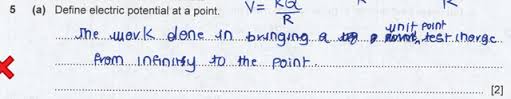 5 (a) Define electric potential at a point. V = KQ/R
unit point
The work done in bringing a test charge
from infinity to the point.
[2]